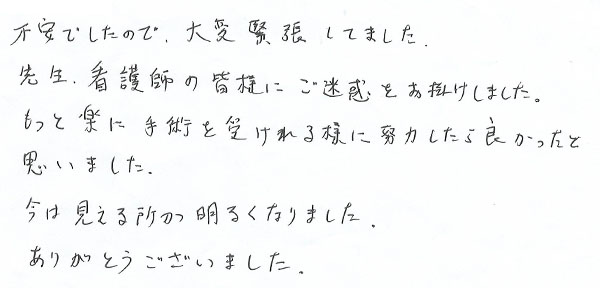 不安でしたので、大変緊張してました.
先生、看護師の皆様にご迷惑をお掛けしました。
もっと楽に手術を受けれる様に努力したら良かったと
思いました.
今は見える所が明るくなりました.
ありがとうございました.